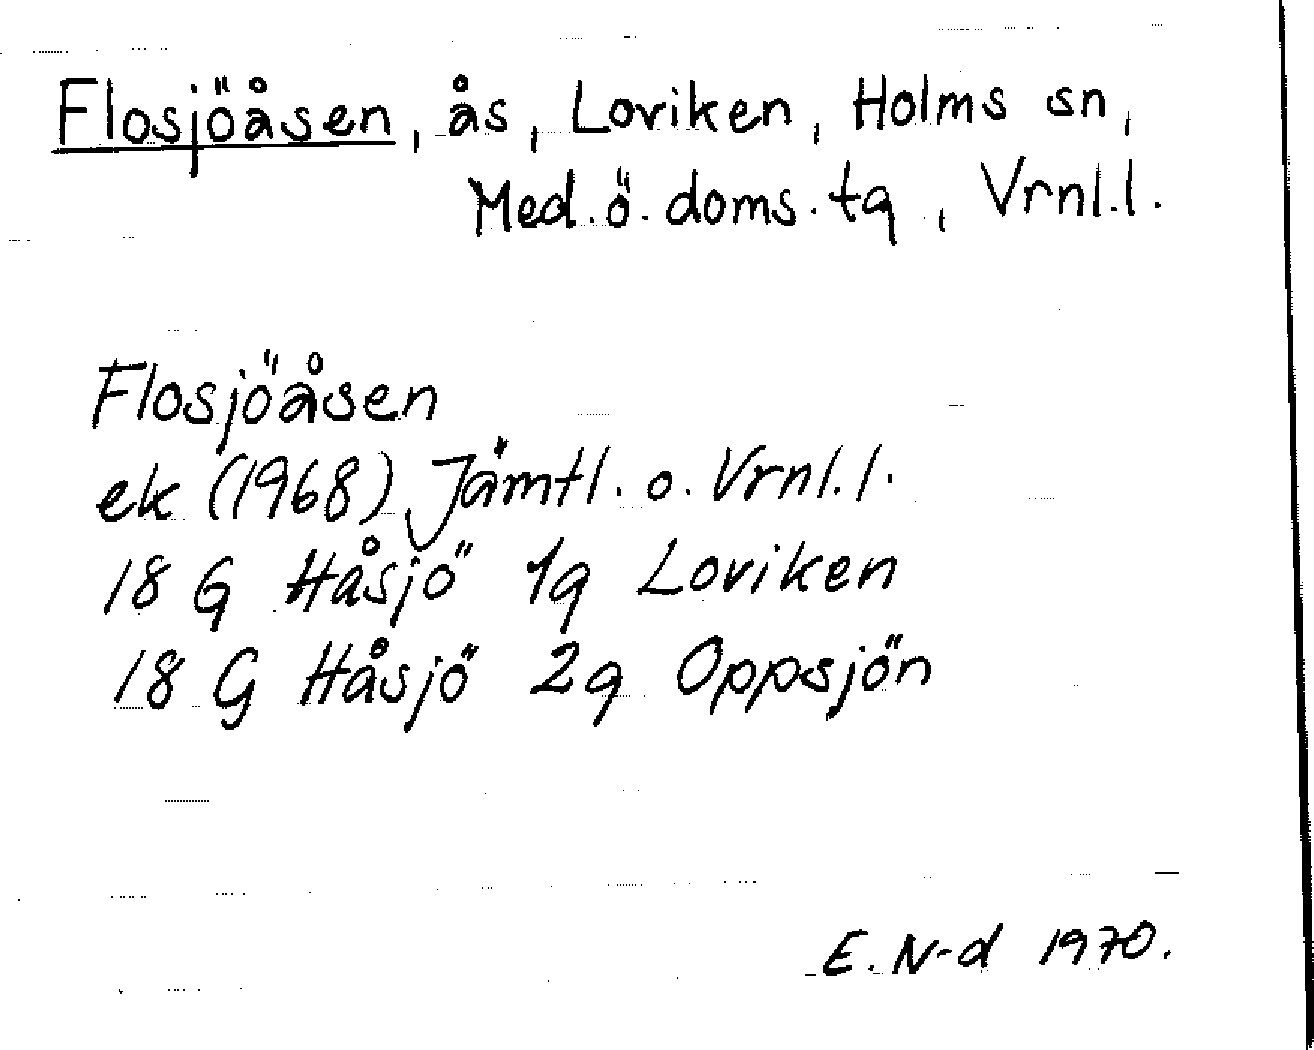 Flosjöåsen, ås, Loviken, Holms sn,
Med. ö. doms. tg, Vrnl. l.
Flosjöåsen
ek (1968) Jämtl. o. Vrnl. l.
18 G Håsjö 1g Loviken
18 G Håsjö 2g Oppsjön
E. N-d 1970.